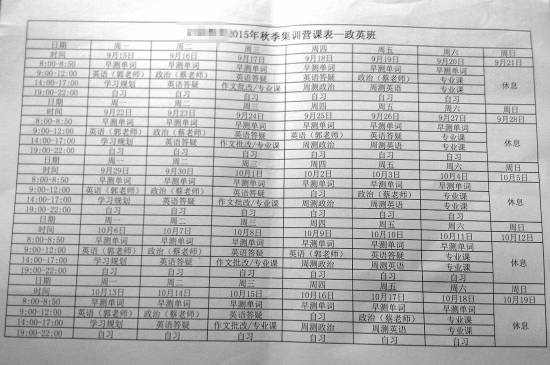 2015年秋季集训营课表—政英班
日期 周一 周二 周三 周四 周五 周六 周日
时间 9月15日 9月16日 9月17日 9月18日 9月19日 9月20日 9月21日
8:00-8:50 早测单词 早测单词 早测单词 早测单词 早测单词 早测单词 休息
9:00-12:00 英语（郭老师） 政治（蔡老师） 英语答疑 英语答疑 政治（蔡老师） 专业课
14:00-17:00 学习规划 英语答疑 作文批改/专业课 周测政治 周测英语 专业课
19:00-22:00 自习 自习 自习 自习 自习 自习
日期 周一 周二 周三 周四 周五 周六 周日
时间 9月22日 9月23日 9月24日 9月25日 9月26日 9月27日 9月28日
8:00-8:50 早测单词 早测单词 早测单词 早测单词 早测单词 早测单词 休息
9:00-12:00 英语（郭老师） 政治（蔡老师） 英语答疑 英语（郭老师） 英语答疑 专业课
14:00-17:00 学习规划 英语答疑 作文批改/专业课 周测政治 周测英语 专业课
19:00-22:00 自习 自习 自习 自习 自习 自习
日期 周一 周二 周三 周四 周五 周六 周日
时间 9月29日 9月30日 10月1日 10月2日 10月3日 10月4日 10月5日
8:00-8:50 早测单词 早测单词 早测单词 早测单词 早测单词 早测单词 休息
9:00-12:00 英语（郭老师） 政治（蔡老师） 英语答疑 英语答疑 政治（蔡老师） 专业课
14:00-17:00 学习规划 英语答疑 作文批改/专业课 周测政治 周测英语 专业课
19:00-22:00 自习 自习 自习 自习 自习 自习
日期 周一 周二 周三 周四 周五 周六 周日
时间 10月6日 10月7日 10月8日 10月9日 10月10日 10月11日 10月12日
8:00-8:50 早测单词 早测单词 早测单词 早测单词 早测单词 早测单词 休息
9:00-12:00 英语（郭老师） 政治（蔡老师） 英语答疑 英语（郭老师） 英语答疑 专业课
14:00-17:00 学习规划 英语答疑 作文批改/专业课 周测政治 周测英语 专业课
19:00-22:00 自习 自习 自习 自习 自习 自习
日期 周一 周二 周三 周四 周五 周六 周日
时间 10月13日 10月14日 10月15日 10月16日 10月17日 10月18日 10月19日
8:00-8:50 早测单词 早测单词 早测单词 早测单词 早测单词 早测单词 休息
9:00-12:00 英语（郭老师） 政治（蔡老师） 英语答疑 英语答疑 政治（蔡老师） 专业课
14:00-17:00 学习规划 英语答疑 作文批改/专业课 周测政治 周测英语 专业课
19:00-22:00 自习 自习 自习 自习 自习 自习